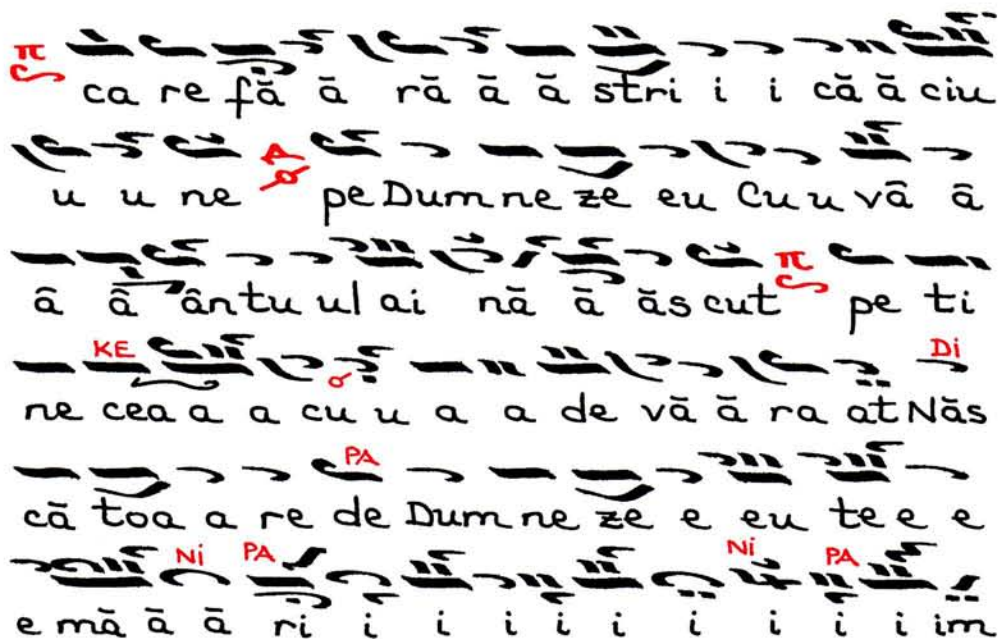 π
ca re fă ă ră ă ă stri i i că ă ciu
Δ
u u ne pe Dum ne ze eu Cu u vâ â
π
â â ân tu ul ai nă ă ăs cut pe ti
KE Di
ne cea a a cu u a a de vă ă ra at Năs
PA
că toa a re de Dum ne ze e eu te e e
Ni PA Ni PA
e mă ă ă ri i i i i i i i i im